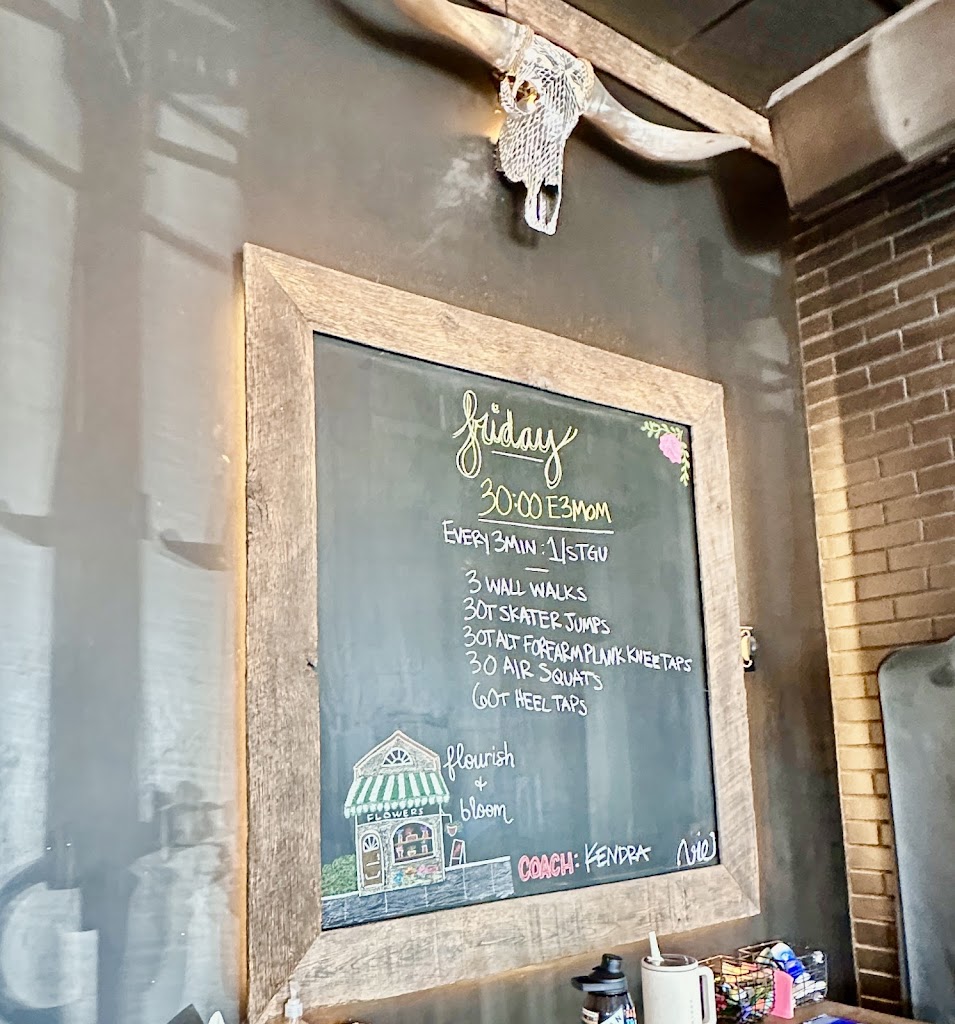 friday
30:00 E3MOM
EVERY 3MIN : 1/STGU
3 WALL WALKS
30T SKATER JUMPS
30T ALT FOREARM PLANK KNEE TAPS
30 AIR SQUATS
60T HEEL TAPS
flourish
&
bloom
FLOWERS
COACH: KENDRA
vie